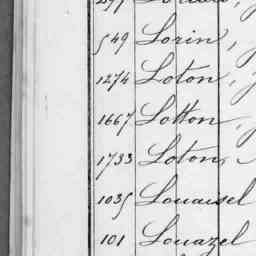 549 Lorin,
1274 Loton,
1667 Lotton,
1733 Loton,
1035 Louaisel
101 Louazel